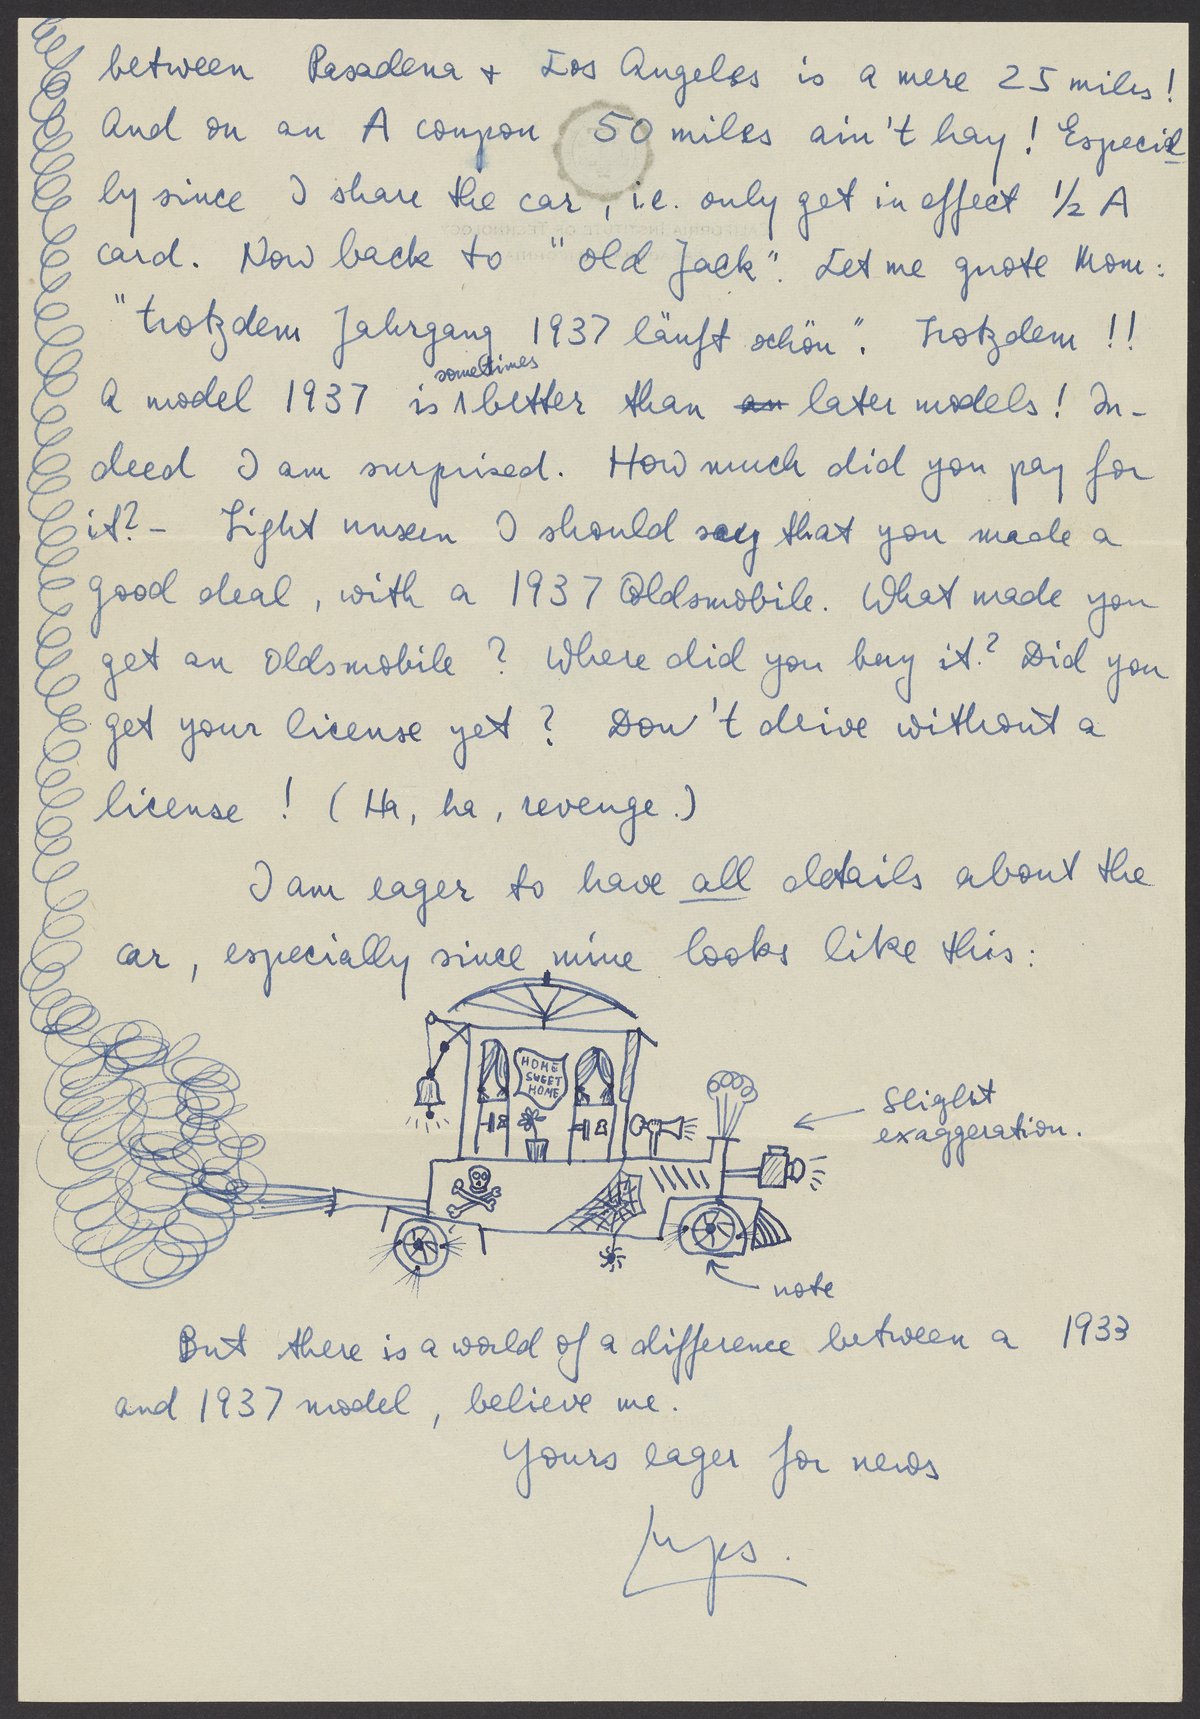 between Pasadena + Los Angeles is a mere 25 miles!
And on an A coupon 50 miles ain't hay! Especial
ly since I share the car, i.e. only get in effect ½ A
card. Now back to "old Jack". Let me quote Mom:
"trotzdem Jahrgang 1937 läuft schön". Trotzdem!!
sometimes
A model 1937 is better than an later models! In-
deed I am surprised. How much did you pay for
it? - Sight unseen I should say that you made a
good deal, with a 1937 Oldsmobile. What made you
get an Oldsmobile? Where did you buy it? Did you
get your license yet? Don't drive without a
license! (Ha, ha, revenge.)
I am eager to have all details about the
car, especially since mine looks like this:
HOME
SWEET
HOME
Slight
exaggeration.
note
But there is a world of a difference between a 1933
and 1937 model, believe me.
Yours eager for news